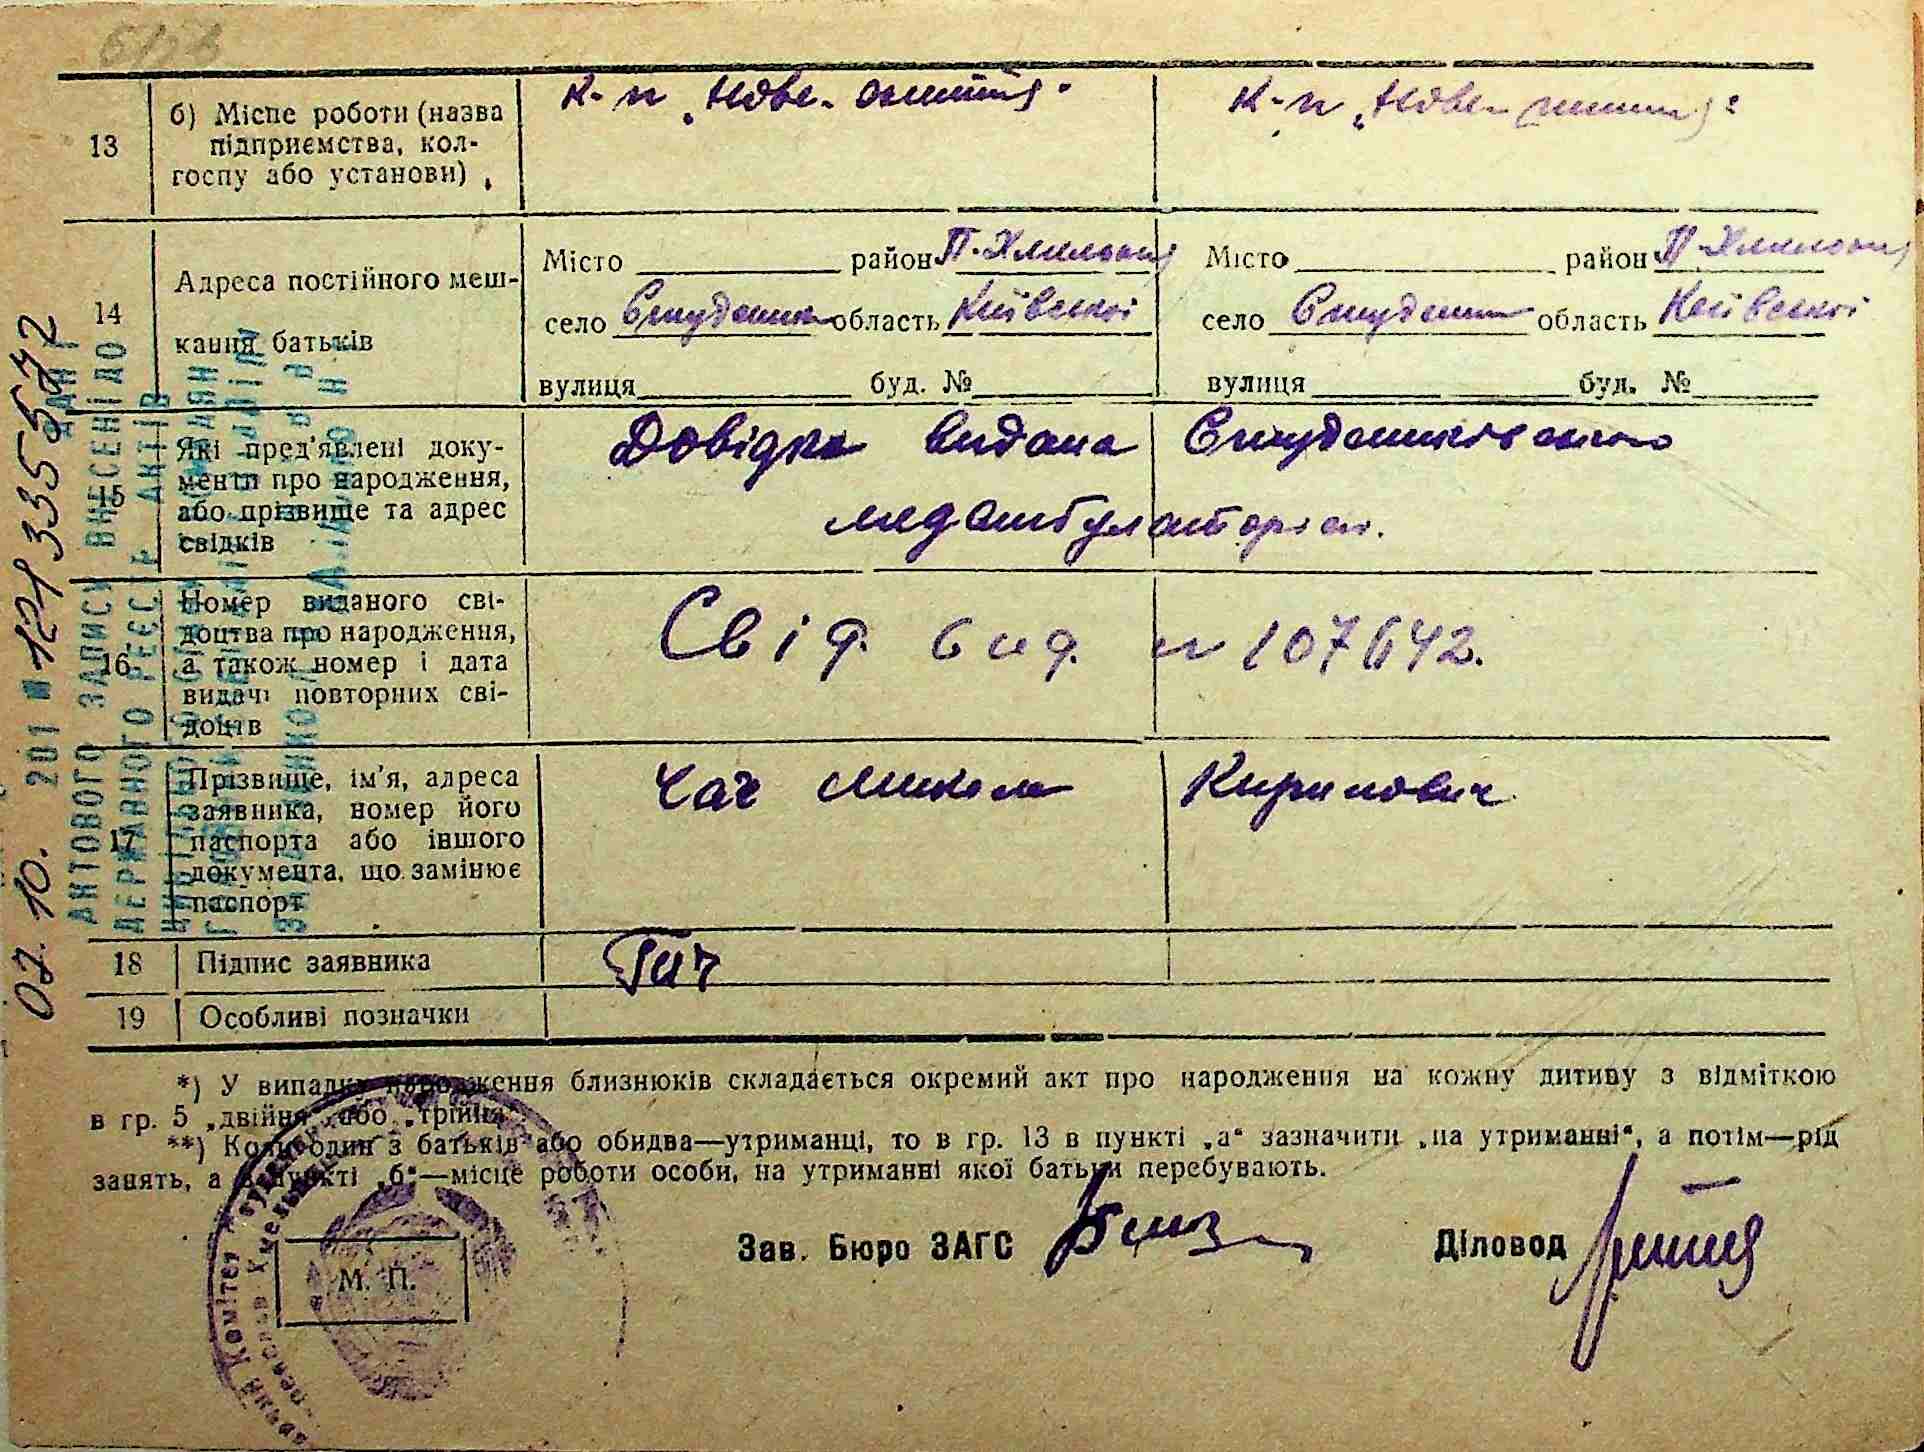 13
б) Місце роботи (назва
підприємства, кол-
госпу або установи)
К-п „Нове життя"
К-п „Нове життя"
14
Адреса постійного меш-
кання батьків
Місто район П-Хмельниц
село Студеники область Київської
вулиця буд. №
Місто район П-Хмельниц
село Студеники область Київської
вулиця буд. №
15
Які пред'явлені доку-
менти про народження,
або прізвище та адрес
свідків
Довідка видана Студениківською
медамбулаторією.
16
Номер виданого сві-
доцтва про народження,
а також номер і дата
видачі повторних сві-
доцтв
Свід. вид. № 107642.
17
Прізвище, ім'я, адреса
заявника, номер його
паспорта або іншого
документа, що замінює
паспорт
Чач Микола Кирилович
18
Підпис заявника
19
Особливі позначки
*) У випадку народження близнюків складається окремий акт про народження на кожну дитину з відміткою
в гр. 5 „двійня" або „трійня"
**) Коли один з батьків або обидва—утриманці, то в гр. 13 в пункті „а" зазначити „на утриманні", а потім—рід
занять, а в пункті „б"—місце роботи особи, на утриманні якої батьки перебувають.
Зав. Бюро ЗАГС
Діловод
М. П.
07. 10. 201 № 1213355572
АКТОВОГО ЗАПИСУ ВНЕСЕНІ ДО
ДЕРЖАВНОГО РЕЄСТР АКТІВ